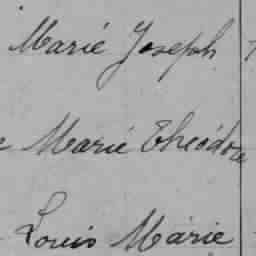 Marié Joseph
Marié Théodore
Louis Marie